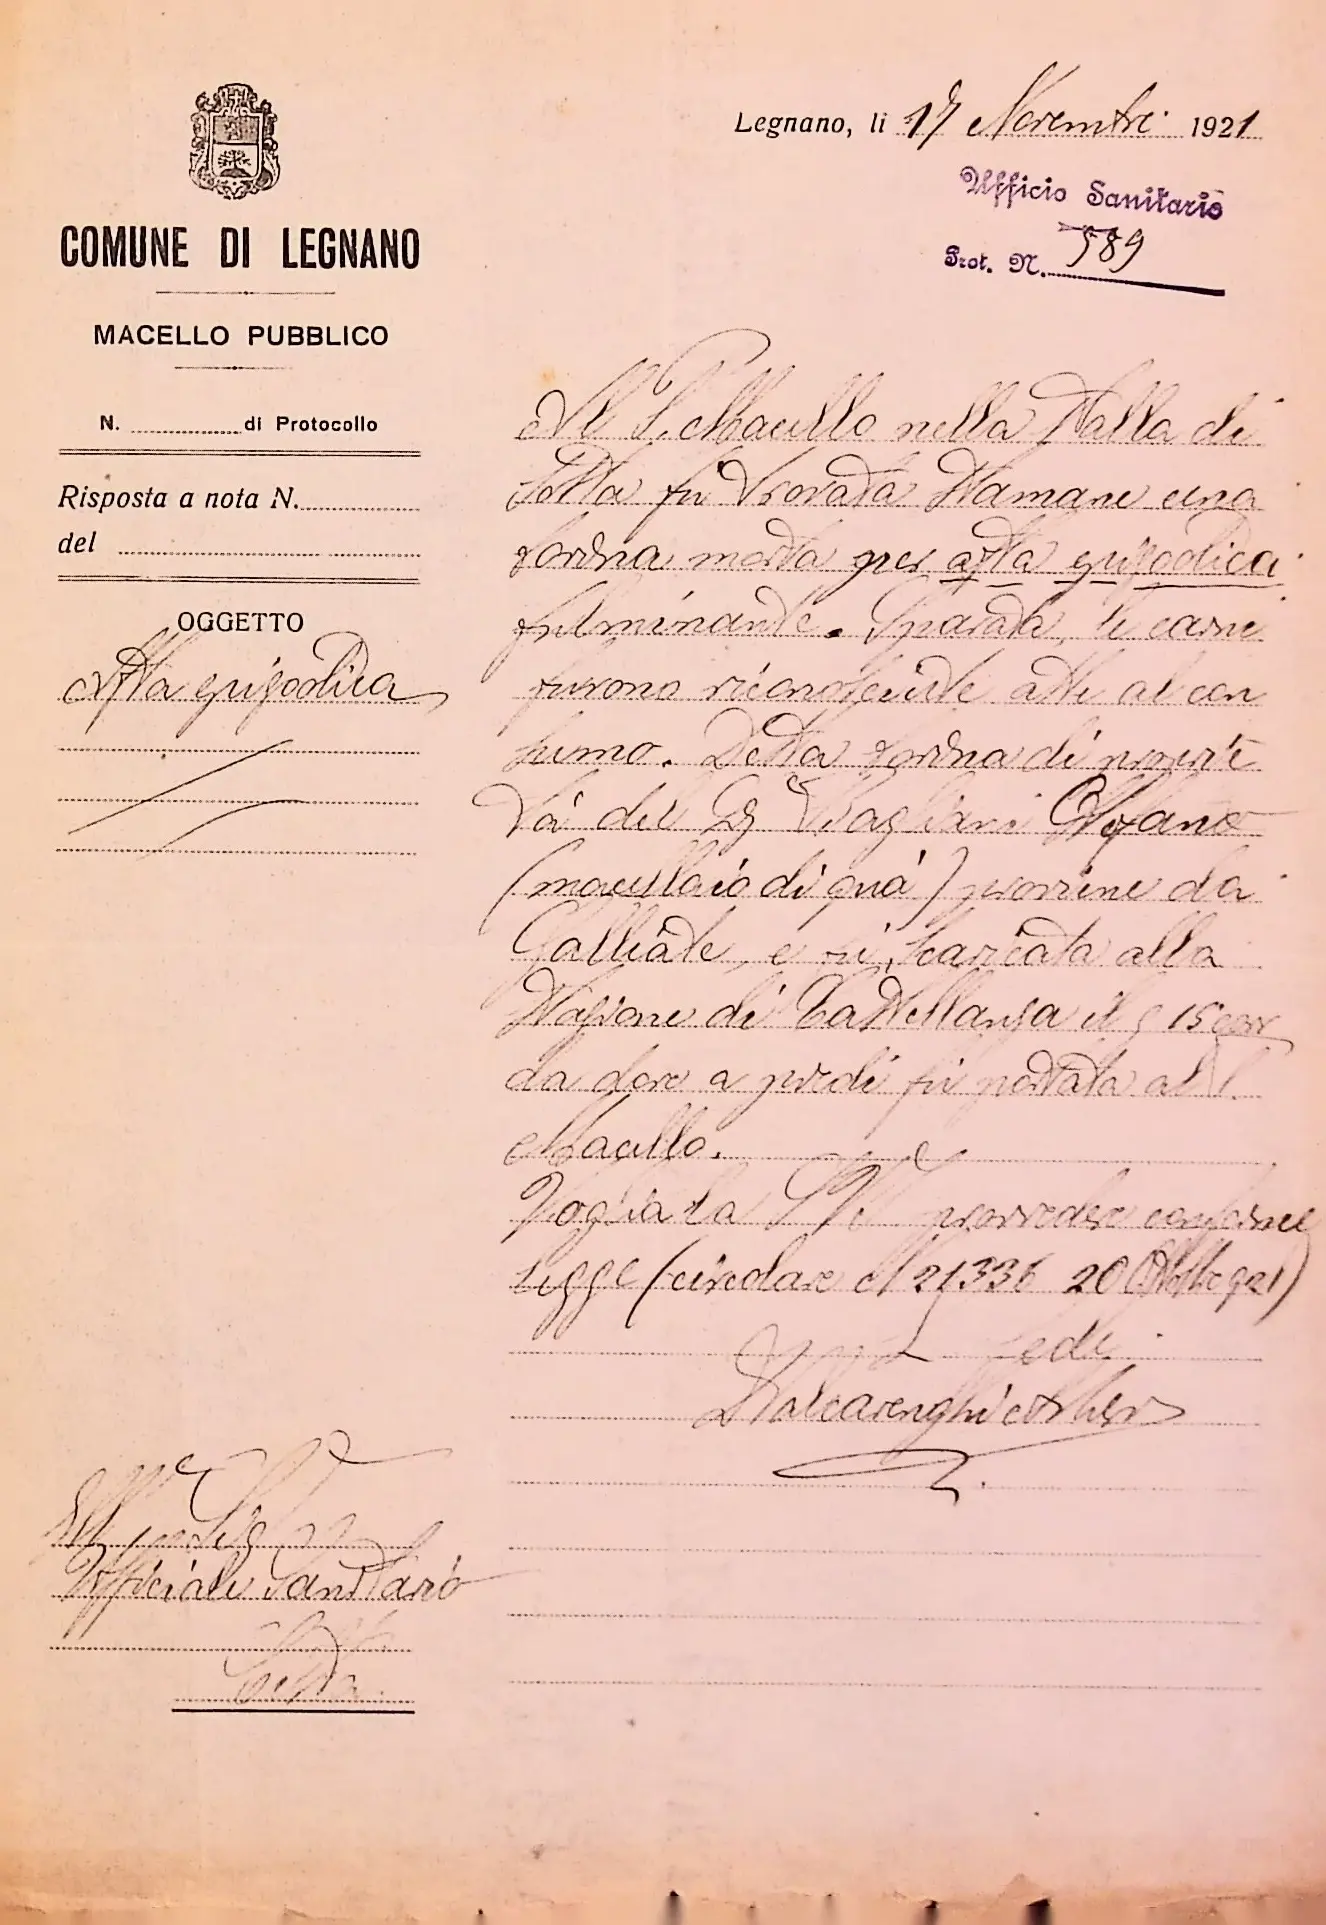 Legnano, li 17 Novembre 1921
Ufficio Sanitario
Prot. N. 589
COMUNE DI LEGNANO
MACELLO PUBBLICO
N. di Protocollo
Risposta a nota N.
del
OGGETTO
Afta epizootica
Al P. Macello nella stalla di
sosta fu trovata stamane una
bovina morta per afta epizootica
fulminante. Sparata, le carni
furono riconosciute atte al con
sumo. Detta bovina di proprie
tà del Sig Stefano
(macellaio di quà) provviene da
Galliate, e fu scaricata alla
stazione di Castellanza il g 15 corr
da dove a piedi fu portata al P.
Macello.
Voglia la S. V. Ill provvedere conforme
legge (circolare N 21336 20 Ottobre 921)
fede
Stalcarenghi
Ill Sig
Ufficiale Sanitario
Città